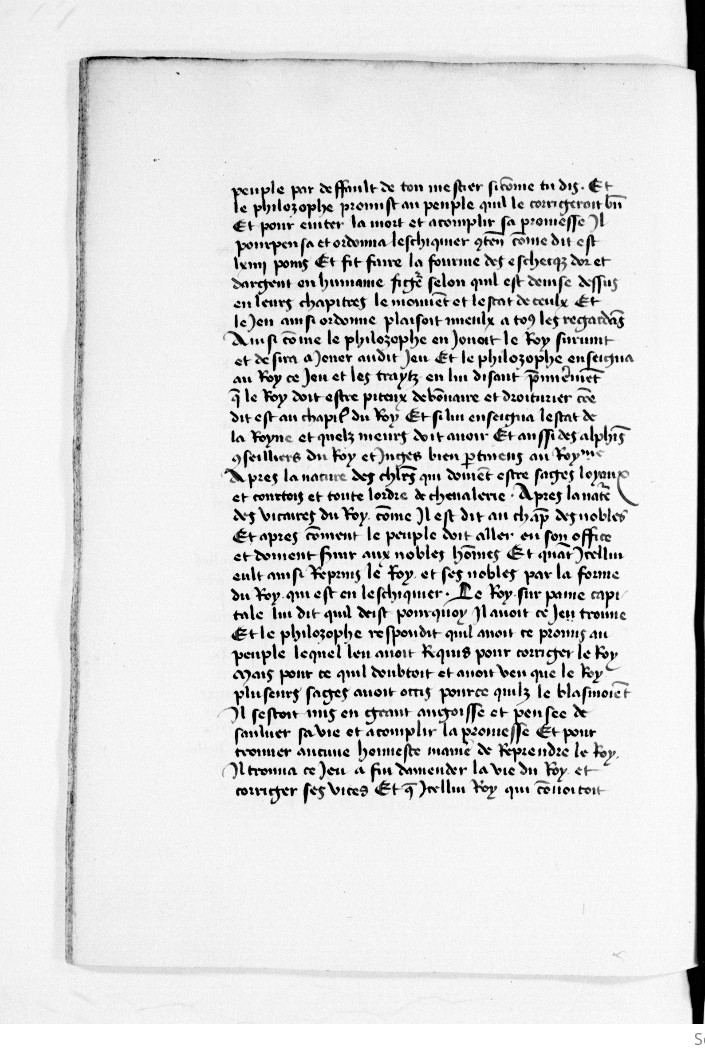 peuple par deffault de ton mestier sicõme tu dis. Et
le philozophe promist au peuple quil le corrigeroit bñ
Et pour euiter la mort et acomplir sa promesse Il
pourpensa et ordonna leschiquier 9teñ cõme dit est
lxiiij poins Et fit faire la fourme des eschecqz dor et
dargent en humaine figẽ selon quil est deuise dessus
en leurs chapitres le mouuẽt et lestat de ceulx Et
le Jeu ainsi ordonne plaisoit mieulx a to9 les regardãs
Ainsi cõme le philozophe en Jouoit le Roy suruint
et desira a Jouer audit Jeu Et le philozophe enseigna
au Roy ce Jeu et les traytz en lui disant p̃mier̃mẽt
q̃ le Roy doit estre piteux debõnaire et droiturier cõe
dit est au chapĩl du Roy Et si lui enseigna lestat de
la Royne et quelz meurs doit auoir Et aussi des alphĩs
9seilliers du Roy et Juges bien p̱tinens au Royme
Apres la nature des chl̃rs qui doiuẽt estre sages loyaux
et courtois et toute lordre de cheualerie. Apres la natẽ
des vicaires du Roy. cõme Il est dit au chap̃ des nobles
Et apres cõment le peuple doit aller en son office
et doiuent seruir aux nobles hõmes Et quãt Jcellui
eult ainsi Reprins le Roy. et ses nobles par la forme
du Roy. qui est en leschiquier. Le Roy. sur paine capi
tale lui dit quil deist pourquoy Il auoit ce Jeu trouue
Et le philozophe respondit quil auoit ce promis au
peuple lequel leu auoit Requis pour corriger le Roy
Mais pour ce quil doubtoit et auoit veu que le Roy
pluseurs sages auoit occis pource quilz le blasmoiẽt
Il sestoit mis en grant angoisse et pensee de
sauluer sa vie et acomplir la promesse Et pour
trouuer aucune honneste manie de Reprendre le Roy.
Il trouua ce Jeu a fin damender la vie du Roy. et
corriger ses vices Et q̃ Jcellui Roy qui cõuoitoit